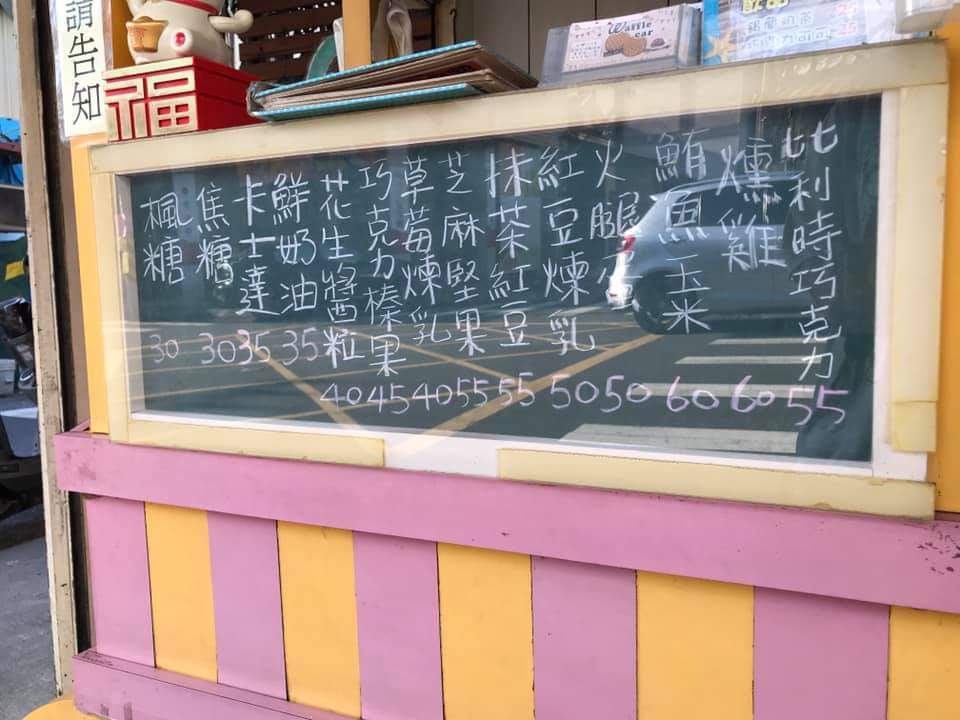 請告知
福
Waffle
car
錫蘭奶茶
比利時巧克力 55
燻雞 60
鮪魚玉米 60
火腿蛋 50
紅豆煉乳 50
抹茶紅豆 55
芝麻堅果 55
草莓煉乳 40
巧克力榛果 45
花生醬粒 40
鮮奶油 35
卡士達 35
焦糖 30
楓糖 30